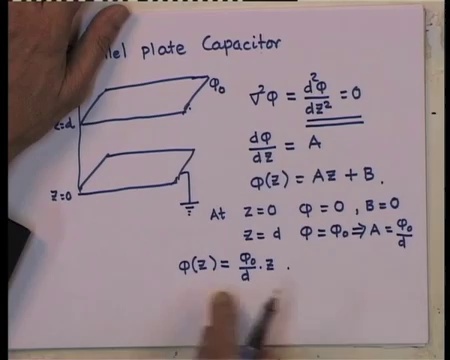 plate Capacitor
φ₀
∇²φ = d²φ/dz² = 0
dφ/dz = A
z=d
φ(z) = Az + B.
z=0
At z=0 φ=0, B=0
z=d φ=φ₀ ⇒ A = φ₀/d
φ(z) = φ₀/d . z .